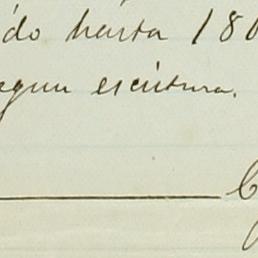 ido hasta 186
egun escritura.